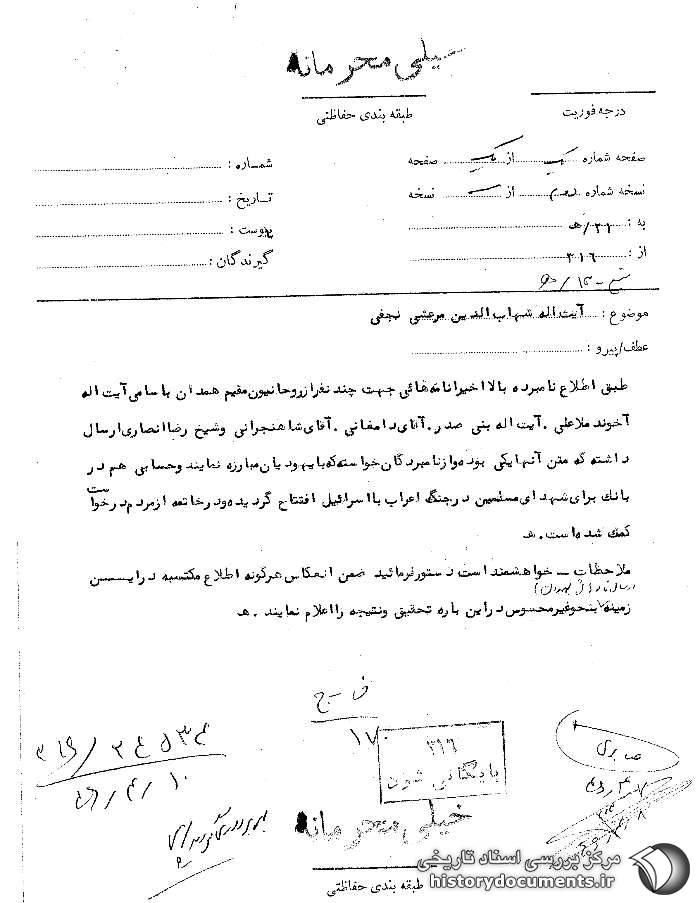 خیلی محرمانه
درجه فوریت
طبقه بندی حفاظتی
صفحه شماره یک از یک صفحه
شماره :
نسخه شماره از نسخه
تاریخ :
به : ۲۱/هـ
پیوست :
از : ۳۱۶
گیرندگان :
موضوع : آیت اله شهاب الدین مرعشی نجفی
عطف/پیرو :
طبق اطلاع نامبرده بالا اخیرا نامه هائی جهت چند نفر از روحانیون مقیم همدان باسامی آیت اله
آخوند ملاعلی . آیت اله بنی صدر . آقای دامغانی . آقای شاهنجرانی وشیخ رضا انصاری ارسال
داشته که متن آنها یکی بوده واز نامبردگان خواسته که با یهودیان مبارزه نمایند وحسابی هم در
بانک برای شهدای مسلمین در جنگ اعراب با اسرائیل افتتاح گردیده ودر خاتمه از مردم درخواست
کمک شده است . هـ
ملاحظات ــ خواهشمند است دستور فرمائید ضمن انعکاس هرگونه اطلاع مکتسبه در این
زمینه بنحو غیرمحسوس در این باره تحقیق ونتیجه را اعلام نمایند . هـ
۱۷۰
۳۱۶
بایگانی شود
صابری
خیلی محرمانه
طبقه بندی حفاظتی
مرکز بررسی اسناد تاریخی
historydocuments.ir